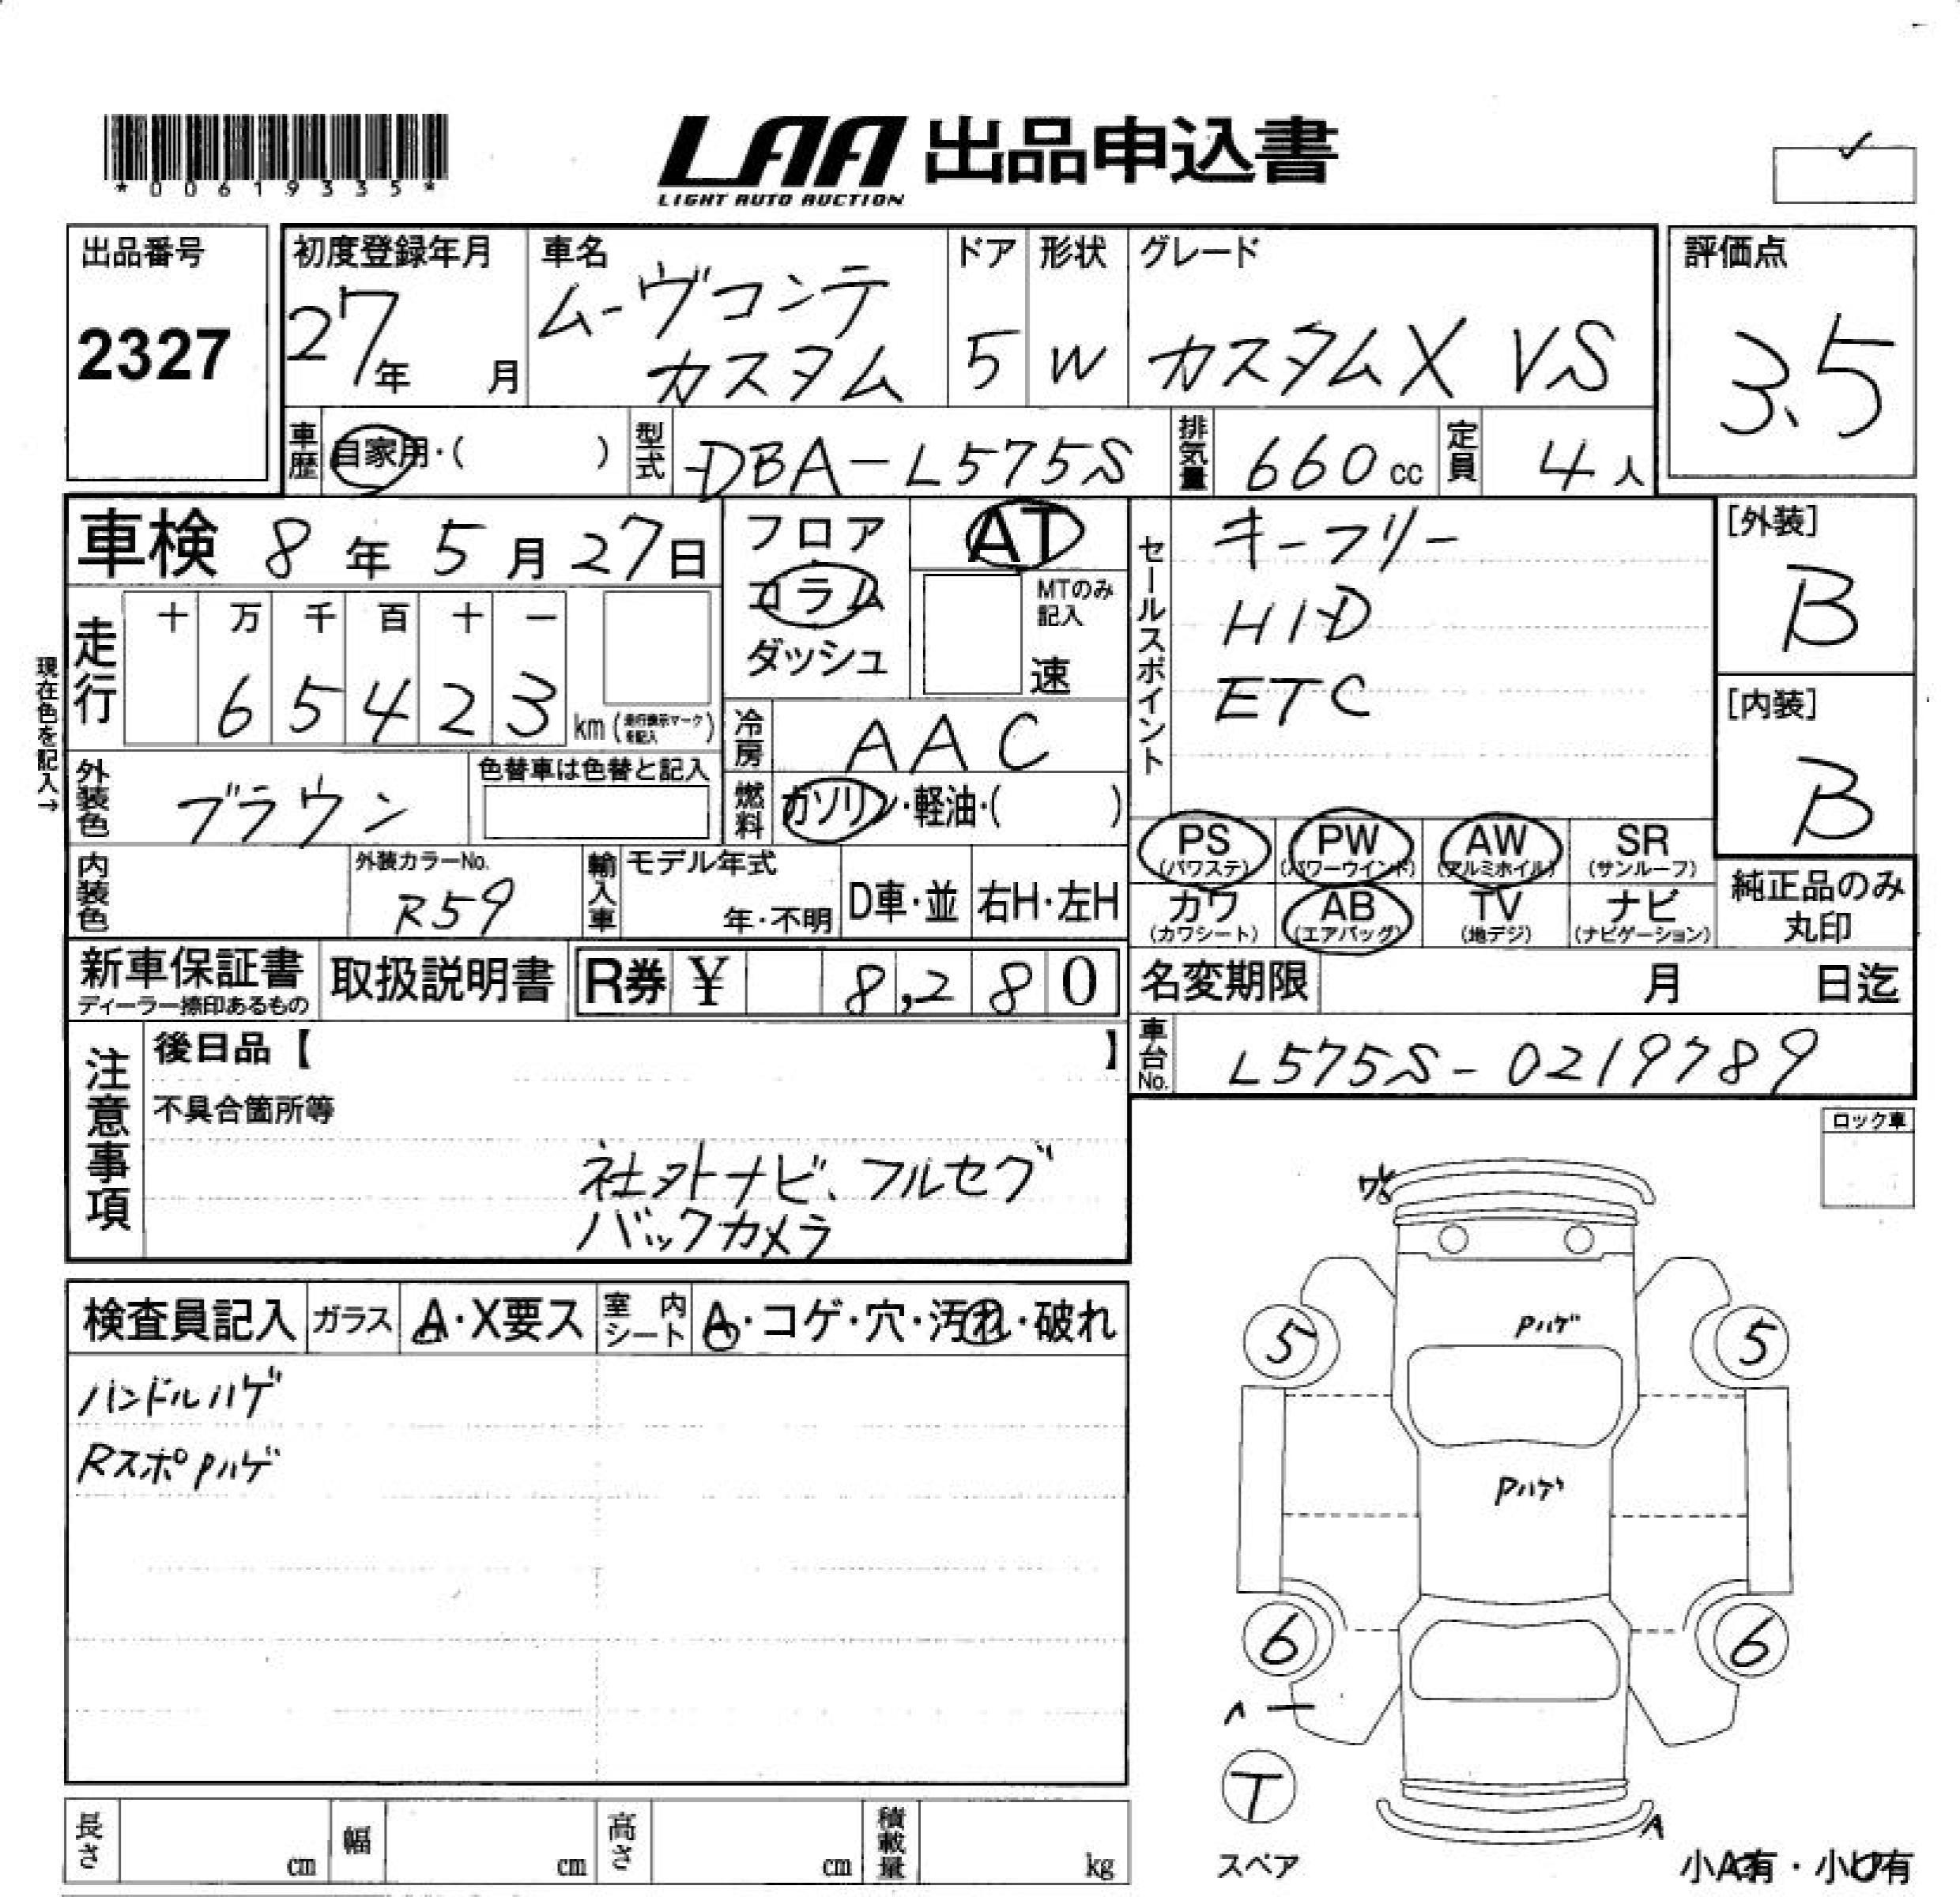 *00619335*
LAA 出品申込書
LIGHT AUTO AUCTION
出品番号
2327
初度登録年月
27年 月
車名
ムーヴコンテ
カスタム
ドア
5
形状
W
グレード
カスタムX VS
評価点
3.5
車歴 自家用・( )
型式 DBA-L575S
排気量 660cc
定員 4人
車検 8年5月27日
フロア
コラム
ダッシュ
AT
MTのみ
記入
速
セールスポイント
キーフリー
HID
ETC
[外装]
B
[内装]
B
現在色を記入→
走行
十 万 千 百 十 一
6 5 4 2 3 km(走行表示マークを記入)
冷房 AAC
外装色 ブラウン
色替車は色替と記入
燃料 ガソリン・軽油・( )
PS (パワステ)
PW (パワーウインド)
AW (アルミホイル)
SR (サンルーフ)
カワ (カワシート)
AB (エアバッグ)
TV (地デジ)
ナビ (ナビゲーション)
純正品のみ
丸印
内装色
外装カラーNo.
R59
輸入車
モデル年式
年・不明
D車・並
右H・左H
新車保証書
ディーラー捺印あるもの
取扱説明書
R券 ¥ 8,280
名変期限 月 日迄
車台No. L575S-0219789
注意事項
後日品【 】
不具合箇所等
社外ナビ、フルセグ
バックカメラ
ロック車
検査員記入
ガラス
A・X要ス
室内シート
A・コゲ・穴・汚れ・破れ
ハンドルハゲ
Rスポ Pハゲ
Pハゲ
5
5
Pハゲ
6
6
T
スペア
A
小A有・小U有
長さ cm
幅 cm
高さ cm
積載量 kg